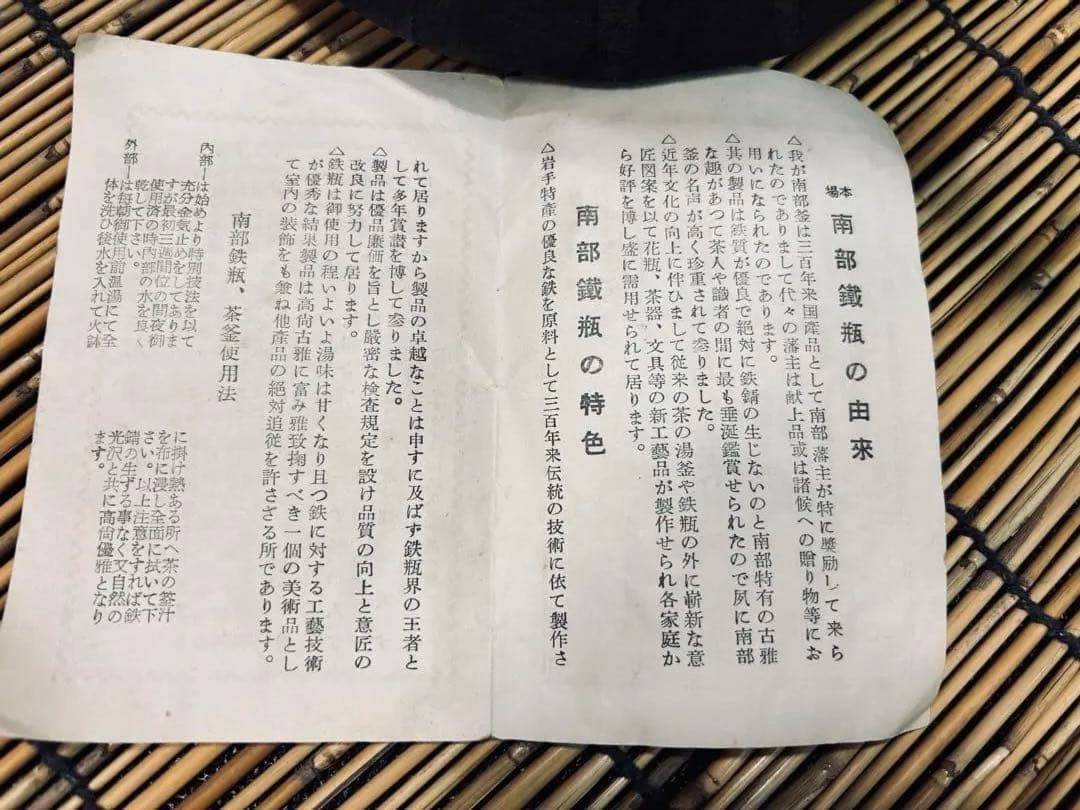 本場 南部鐵瓶の由來
△我が南部釜は三百年来国産品として南部藩主が特に奬励して来ら
れたのでありまして代々の藩主は献上品或は諸候への贈り物等にお
用いになられたのであります。
△其の製品は鉄質が優良で絶対に鉄錆の生じないのと南部特有の古雅
な趣があつて茶人や識者の間に最も垂涎鑑賞せられたので夙に南部
釜の名声が高く珍重されて参りました。
△近年文化の向上に伴ひまして従来の茶の湯釜や鉄瓶の外に嶄新な意
匠図案を以て花瓶、茶器、文具等の新工藝品が製作せられ各家庭か
ら好評を博し盛に需用せられて居ります。
南部鐵瓶の特色
△岩手特産の優良な鉄を原料として三百年来伝統の技術に依て製作さ
れて居りますから製品の卓越なことは申すに及ばず鉄瓶界の王者と
して多年賞讃を博して参りました。
△製品は優品廉価を旨とし厳密な検査規定を設け品質の向上と意匠の
改良に努力して居ります。
△鉄瓶は御使用の程いよいよ湯味は甘くなり且つ鉄に対する工藝技術
が優秀な結果製品は高尚古雅に富み雅致掬すべき一個の美術品とし
て室内の装飾をも兼ね他産品の絶対追従を許さざる所であります。
南部鉄瓶、茶釜使用法
内部―は始めより特別技法を以て
充分金気止めをしてありま
すが最初三週間位の間夜御
使用済の時内部の水を良く
乾して下さい。
外部―は毎朝御使用前温湯にて全
体を洗ひ後水を入れて火鉢
に掛け熱ある所へ茶の荃汁
を布に浸し全面に拭いて下
さい。以上注意をすれば鉄
錆の生ずる事なく又自然の
光沢と共に高尚優雅となり
ます。